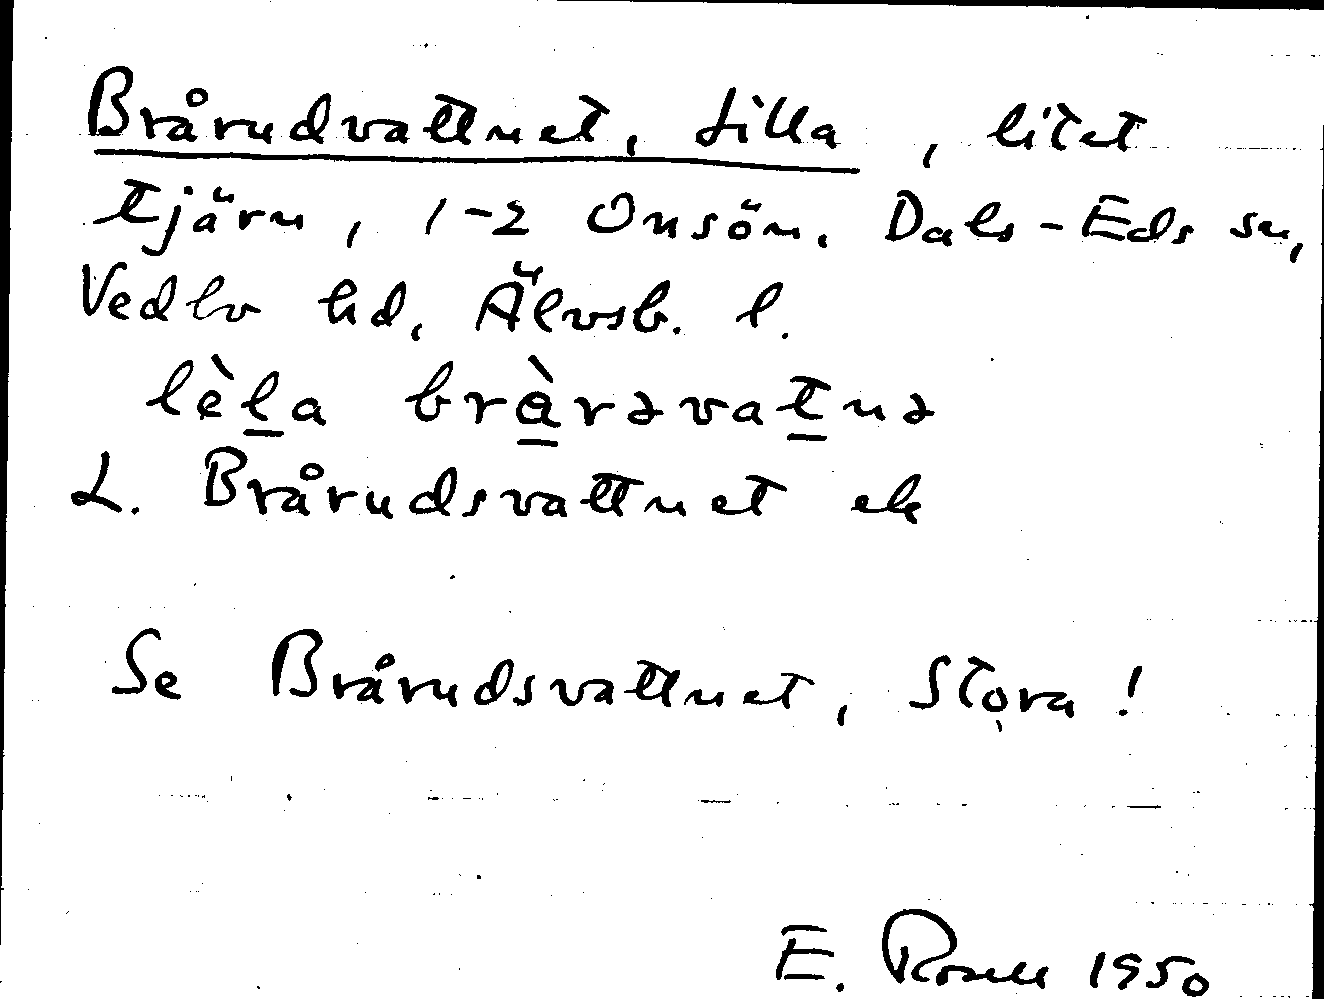 Brårudvattnet, Lilla, litet
tjärn, 1-2 Onsön. Dals-Eds sn,
Vedbo hd, Älvsb. l.
lèl̲a brà̲rəvat̲nə
L. Brårudsvattnet ek
Se Brårudsvattnet, Stora!
E. Rosell 1950